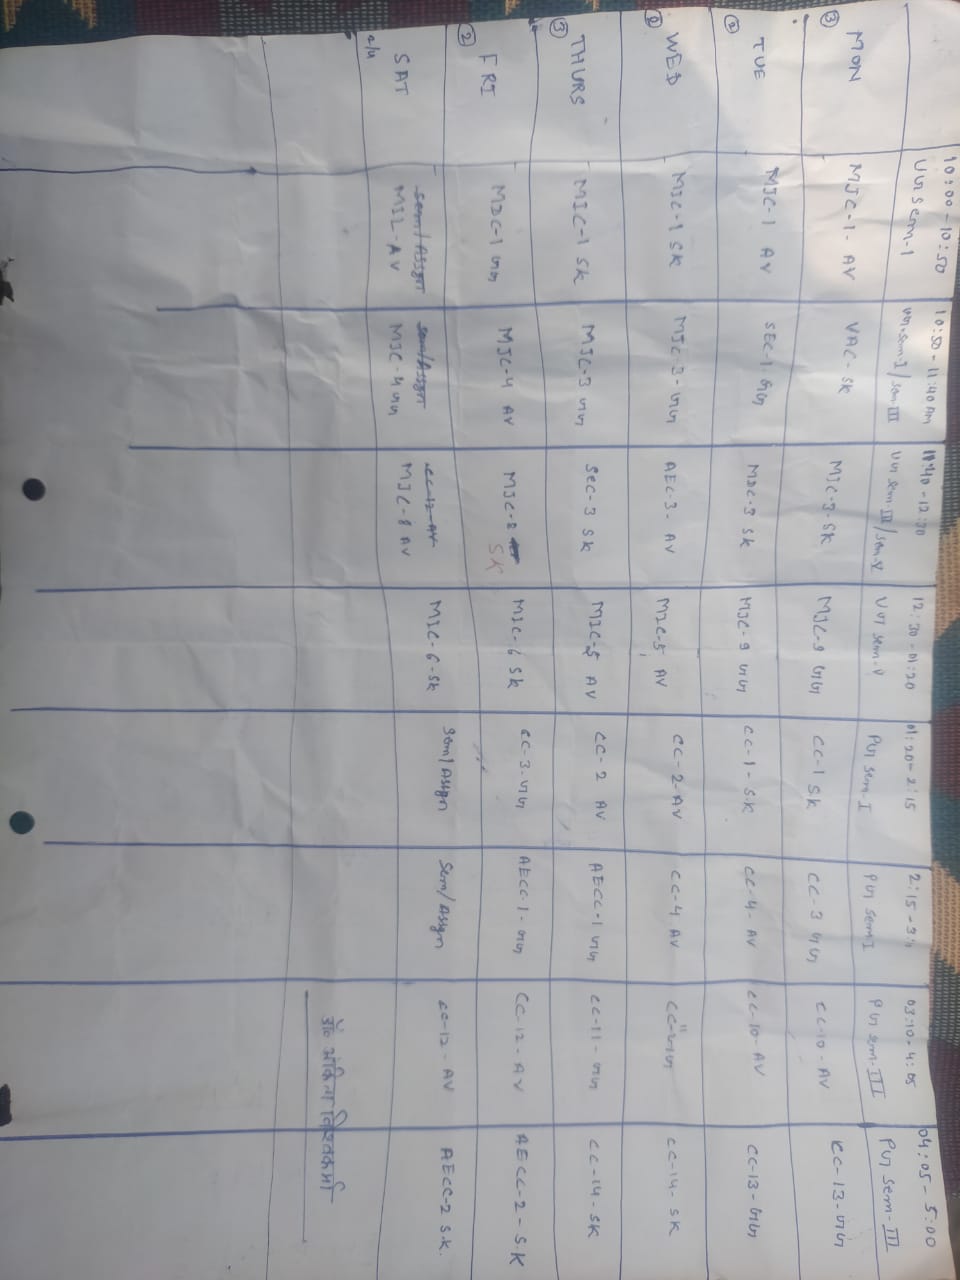 10:00-10:50 10:50-11:40 AM 11:40-12:30 12:30-01:20 01:20-2:15 2:15-3: 03:10-4:05 04:05-5:00
UG sem-1 UG-sem-I/sem-III UG sem-III/sem-V UG sem-V PG sem-I PG sem I PG sem-III PG sem-III
③ MON MJC-1-AV VAC-SK MJC-3-SK MJC-9 GG CC-1 SK CC-3 GG CC-10-AV CC-13-GG
② TUE MJC-1 AV SEC-1-GG MDC-3 SK MJC-9 GG CC-1-S.K CC-4-AV CC-10-AV CC-13-GG
② WED MJC-1 SK MJC-3-GG AEC-3-AV MJC-5, AV CC-2-AV CC-4 AV CC-11 GG CC-14-SK
③ THURS MJC-1 SK MJC-3 GG SEC-3 SK MJC-5 AV CC-2 AV AECC-1 GG CC-11-GG CC-14-SK
② FRI MDC-1 GG MJC-4 AV MJC-8 SK MJC-6 SK CC-3-GG AECC-1-GG CC-12-AV AECC-2-S.K
sem/Assgn sem/Assgn CC-12-AV
SAT MIL-AV MJC-4 GG MJC-8 AV MJC-6-SK Sem/Assgn Sem/Assgn CC-12-AV AECC-2 S.K.